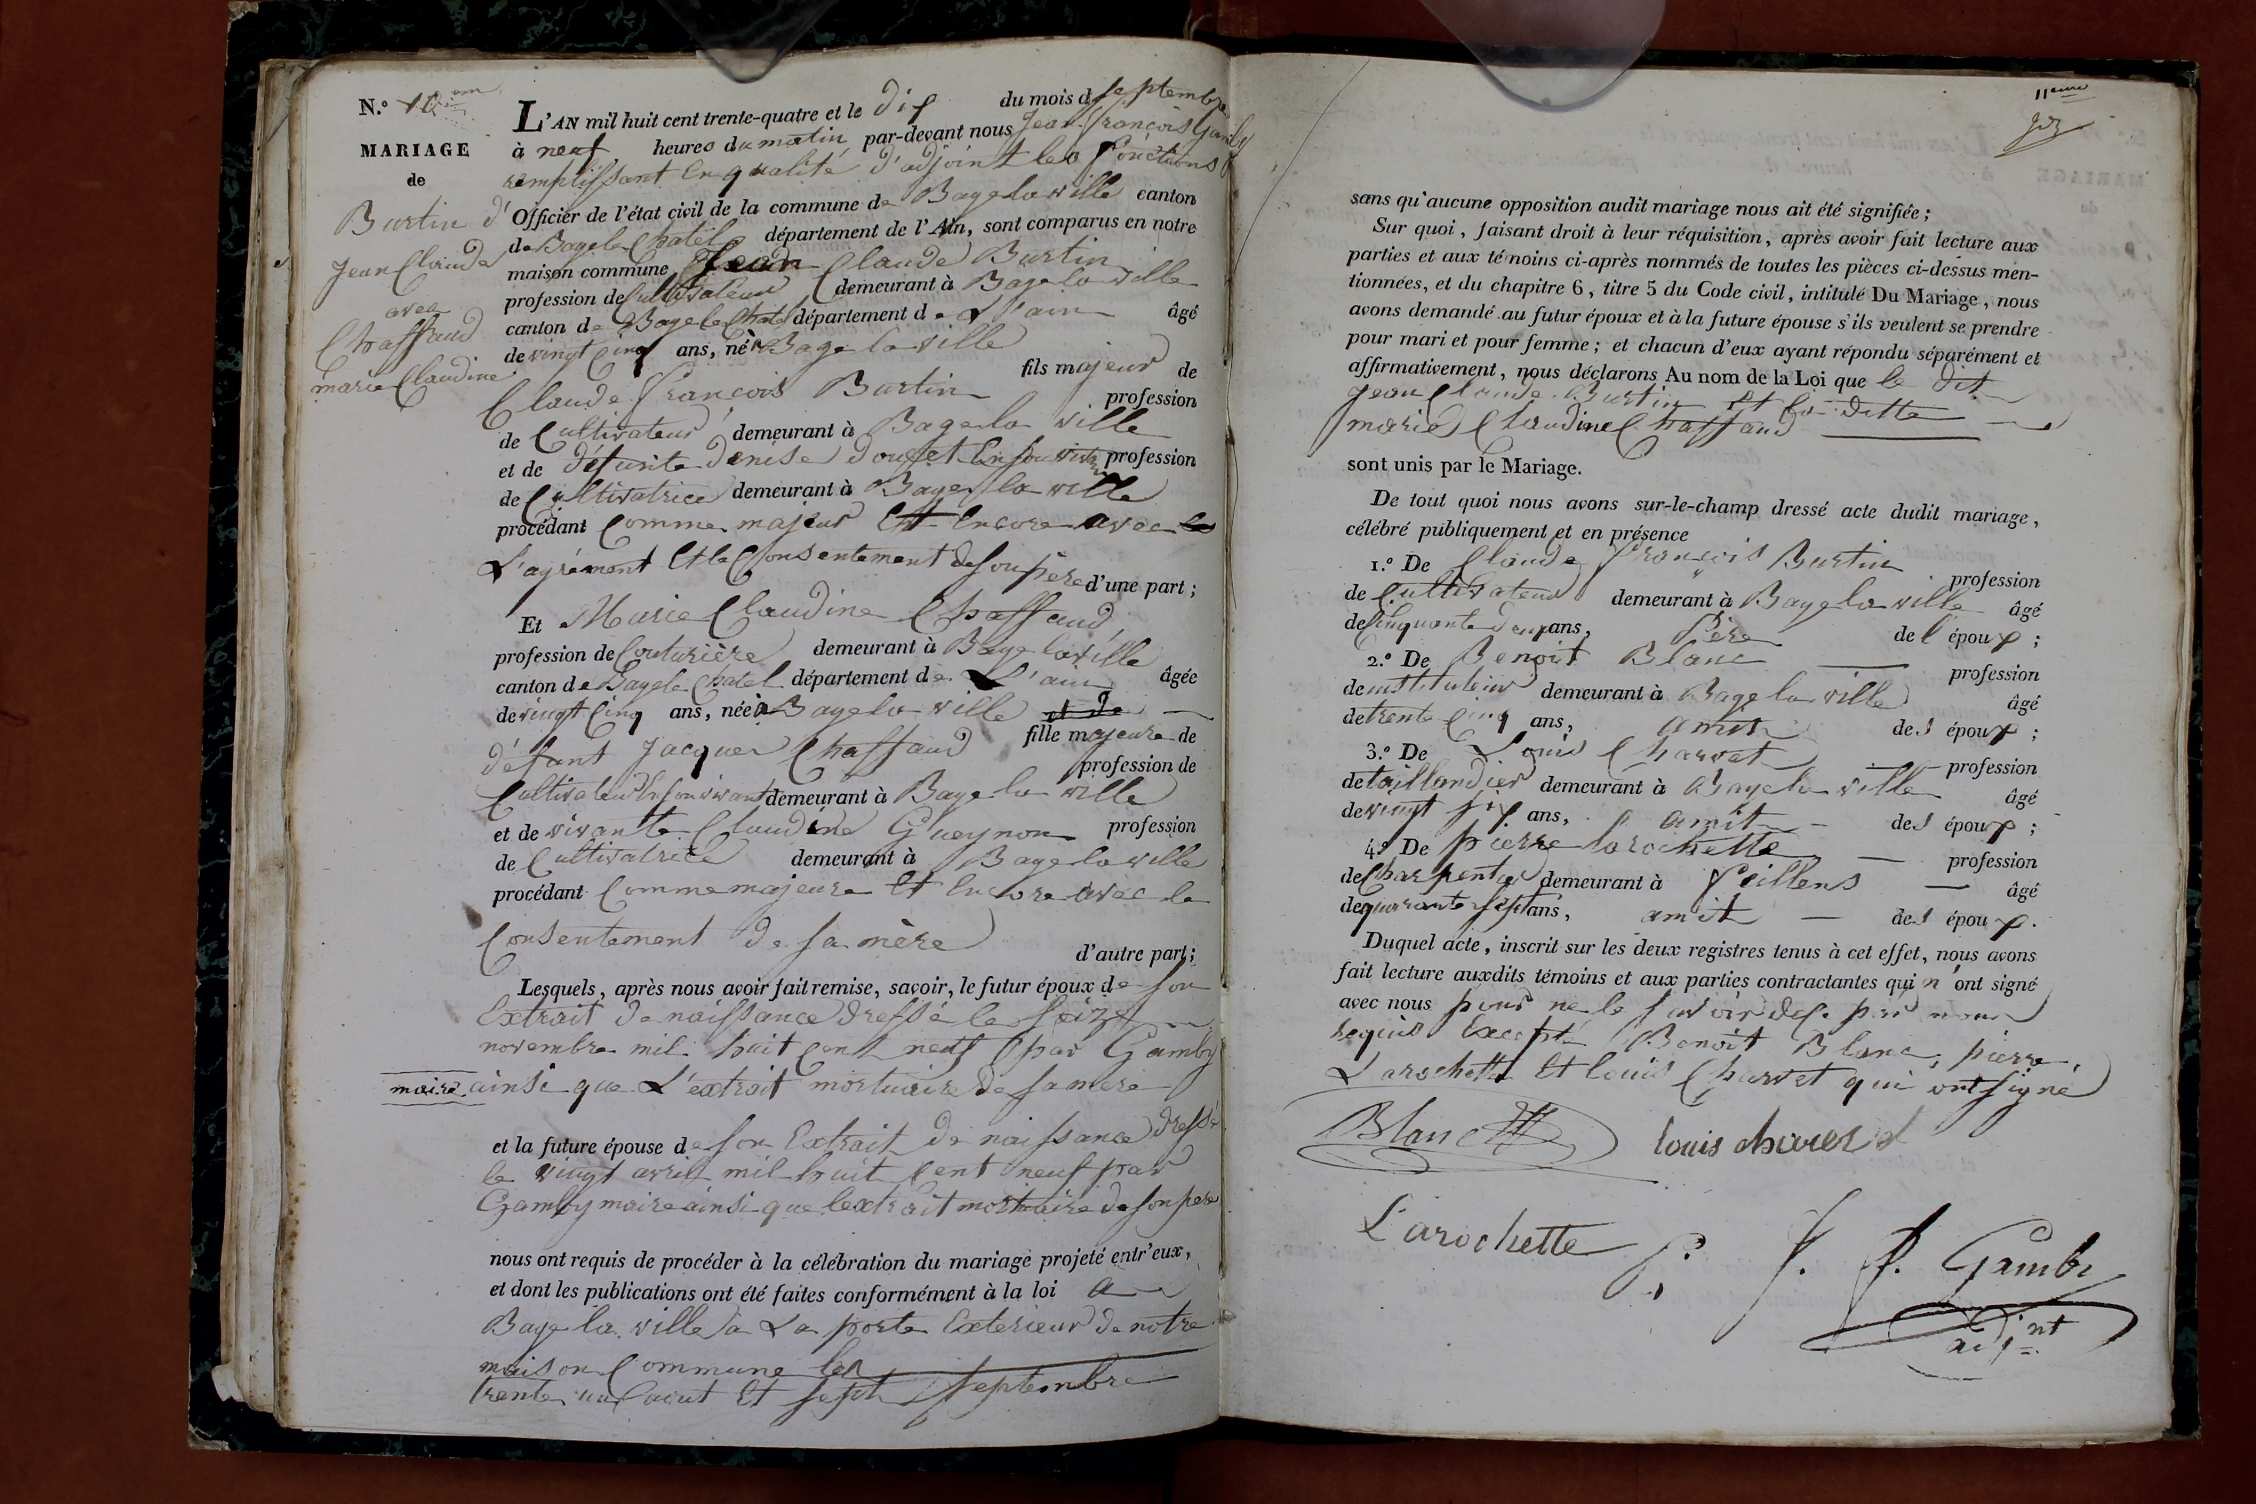 N.o 10
MARIAGE
de
Burtin d'
Jean Claude
avec
Chaffaud
marie Claudine
L'AN mil huit cent trente-quatre et le dix du mois de Septembre
à neuf heures du matin par-devant nous Jean François Gamby
remplissant En qualité d'adjoint les fonctions
Officier de l'état civil de la commune de Bage la ville canton
de Bage le Chatel département de l'Ain, sont comparus en notre
maison commune Jean Claude Burtin
profession de Cultivateur demeurant à Bage la ville
canton de Bage le Chatel département de L'ain âgé
de vingt Cinq ans, né à Bage la ville
fils majeur de
Claude François Burtin profession
de Cultivateur demeurant à Bage la ville
et de défunte Denise Doucet En son vivant profession
de Cultivatrice demeurant à Bage la ville
procédant Comme majeur Et Encore avec
L'agrément Et le Consentement de son père d'une part ;
Et Marie Claudine Chaffaud
profession de Couturière demeurant à Bage la ville
canton de Bage le Chatel département de L'ain âgée
de vingt Cinq ans, née à Bage la ville et de
fille majeure de
défunt Jacques Chaffaud profession de
Cultivateur En son vivant demeurant à Bage la ville
et de vivante Claudine Gueynon profession
de Cultivatrice demeurant à Bage la ville
procédant Comme majeure Et Encore avec le
Consentement de sa mère d'autre part ;
Lesquels, après nous avoir fait remise, savoir, le futur époux de son
Extrait de naissance dressé le seize
novembre mil huit Cent neuf par Gamby
maire ainsi que L'extrait mortuaire de sa mere
et la future épouse de son Extrait de naissance dressé
le vingt avril mil huit Cent neuf par
Gamby maire ainsi que lextrait mortuaire de son pere
nous ont requis de procéder à la célébration du mariage projeté entr'eux,
et dont les publications ont été faites conformément à la loi a
Bage la ville a La porte Exterieur de notre
maison Commune les
trente un aout Et sept Septembre
11eme
sans qu'aucune opposition audit mariage nous ait été signifiée ;
Sur quoi, faisant droit à leur réquisition, après avoir fait lecture aux
parties et aux témoins ci-après nommés de toutes les pièces ci-dessus men-
tionnées, et du chapitre 6, titre 5 du Code civil, intitulé Du Mariage, nous
avons demandé au futur époux et à la future épouse s'ils veulent se prendre
pour mari et pour femme ; et chacun d'eux ayant répondu séparément et
affirmativement, nous déclarons Au nom de la Loi que le dit
Jean Claude Burtin Et la ditte
marie Claudine Chaffaud
sont unis par le Mariage.
De tout quoi nous avons sur-le-champ dressé acte dudit mariage,
célébré publiquement et en présence
1.o De Claude François Burtin profession
de Cultivateur demeurant à Bage la ville âgé
de Cinquante deux ans, Père de l'époux ;
2.o De Benoit Blanc profession
de instituteur demeurant à Bage la ville âgé
de trente Cinq ans, amit des époux ;
3.o De Louis Charvet profession
de taillandier demeurant à Bage la ville âgé
de vingt six ans, amit des époux ;
4.o De pierre larochette profession
de Charpentier demeurant à Feillens âgé
de quarante sept ans, amit des époux.
Duquel acte, inscrit sur les deux registres tenus à cet effet, nous avons
fait lecture auxdits témoins et aux parties contractantes qui n'ont signé
avec nous pour ne le savoir de ce par nous
requis Excepté Benoit Blanc, pierre
Larochette Et Louis Charvet qui ont signé
Blanc
louis charvet
Larochette p.
J. f. Gamby
adjnt